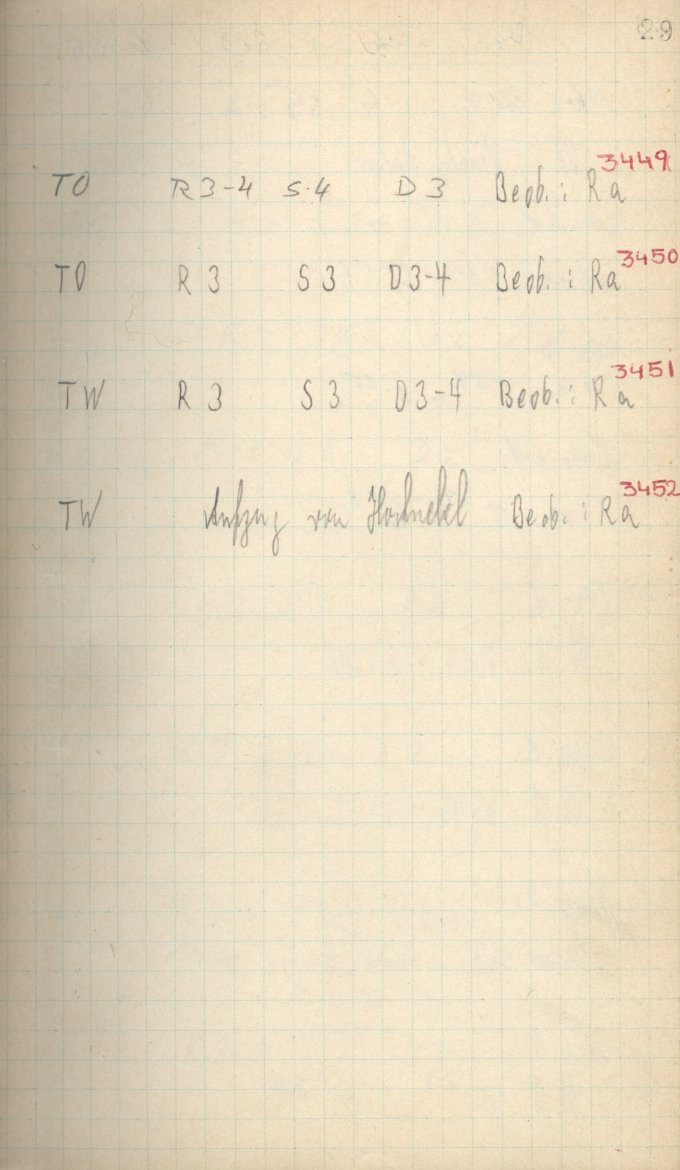 29
3449
TO R 3-4 S.4 D 3 Beob. : Ra
3450
TO R 3 S 3 D 3-4 Beob. : Ra
3451
TW R 3 S 3 D 3-4 Beob. : Ra
3452
TW Aufzug von Hochnebel Beob. : Ra